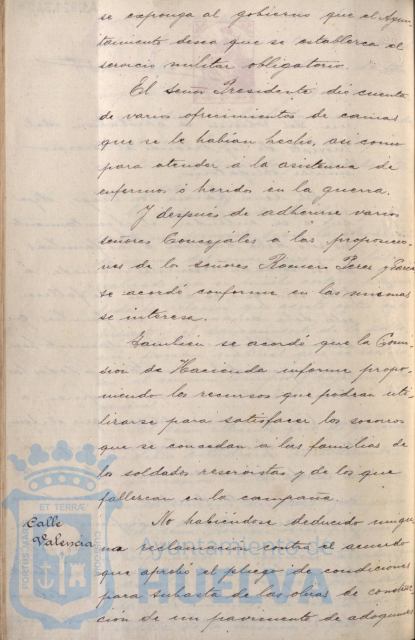 se exponga al gobierno que el Ayun-
tamiento desea que se establezca el
servicio militar obligatorio.
El señor Presidente dió cuenta
de varios ofrecimientos de camas
que se le habian hecho, asi como
para atender á la asistencia de
enfermos ó heridos en la guerra.
Y después de adherirse varios
señores Concejáles á las proposicio-
nes de los señores Romero Perez y Garcia
se acordó conforme en las mismas
se interesa.
Tambien se acordó que la Comi-
sión de Hacienda informe propo-
niendo los recursos que podrán uti-
lizarse para satisfacer los socorros
que se concedan á las familias de
los soldados reservistas y de los que
fallezcan en la campaña.
Calle
Valencia
No habiéndose deducido ningu-
na reclamación contra el acuerdo
que aprobó el pliego de condiciones
para subasta de las obras de construc
ción de un pavimento de adoquines
PORTUS MARIS ET TERRÆ CUSTODIA
Ayuntamiento de
HUELVA